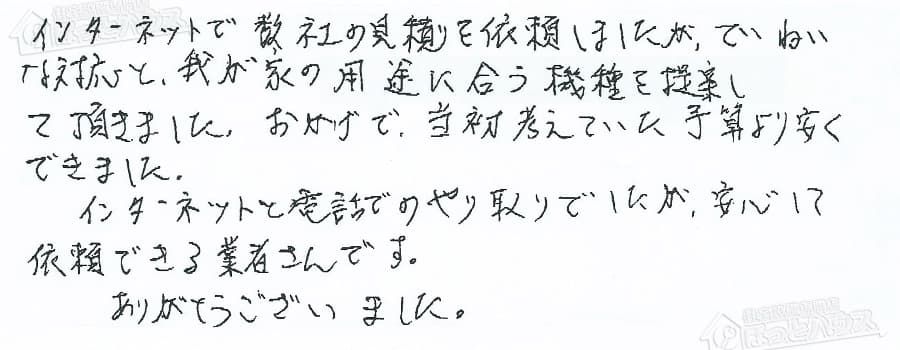 インターネットで数社の見積りを依頼しましたが、ていねい
な対応と、我が家の用途に合う機種を提案し
て頂きました。おかげで、当初考えていた予算より安く
できました。
インターネットと電話でのやり取りでしたが、安心して
依頼できる業者さんです。
ありがとうございました。
ほっとハウス